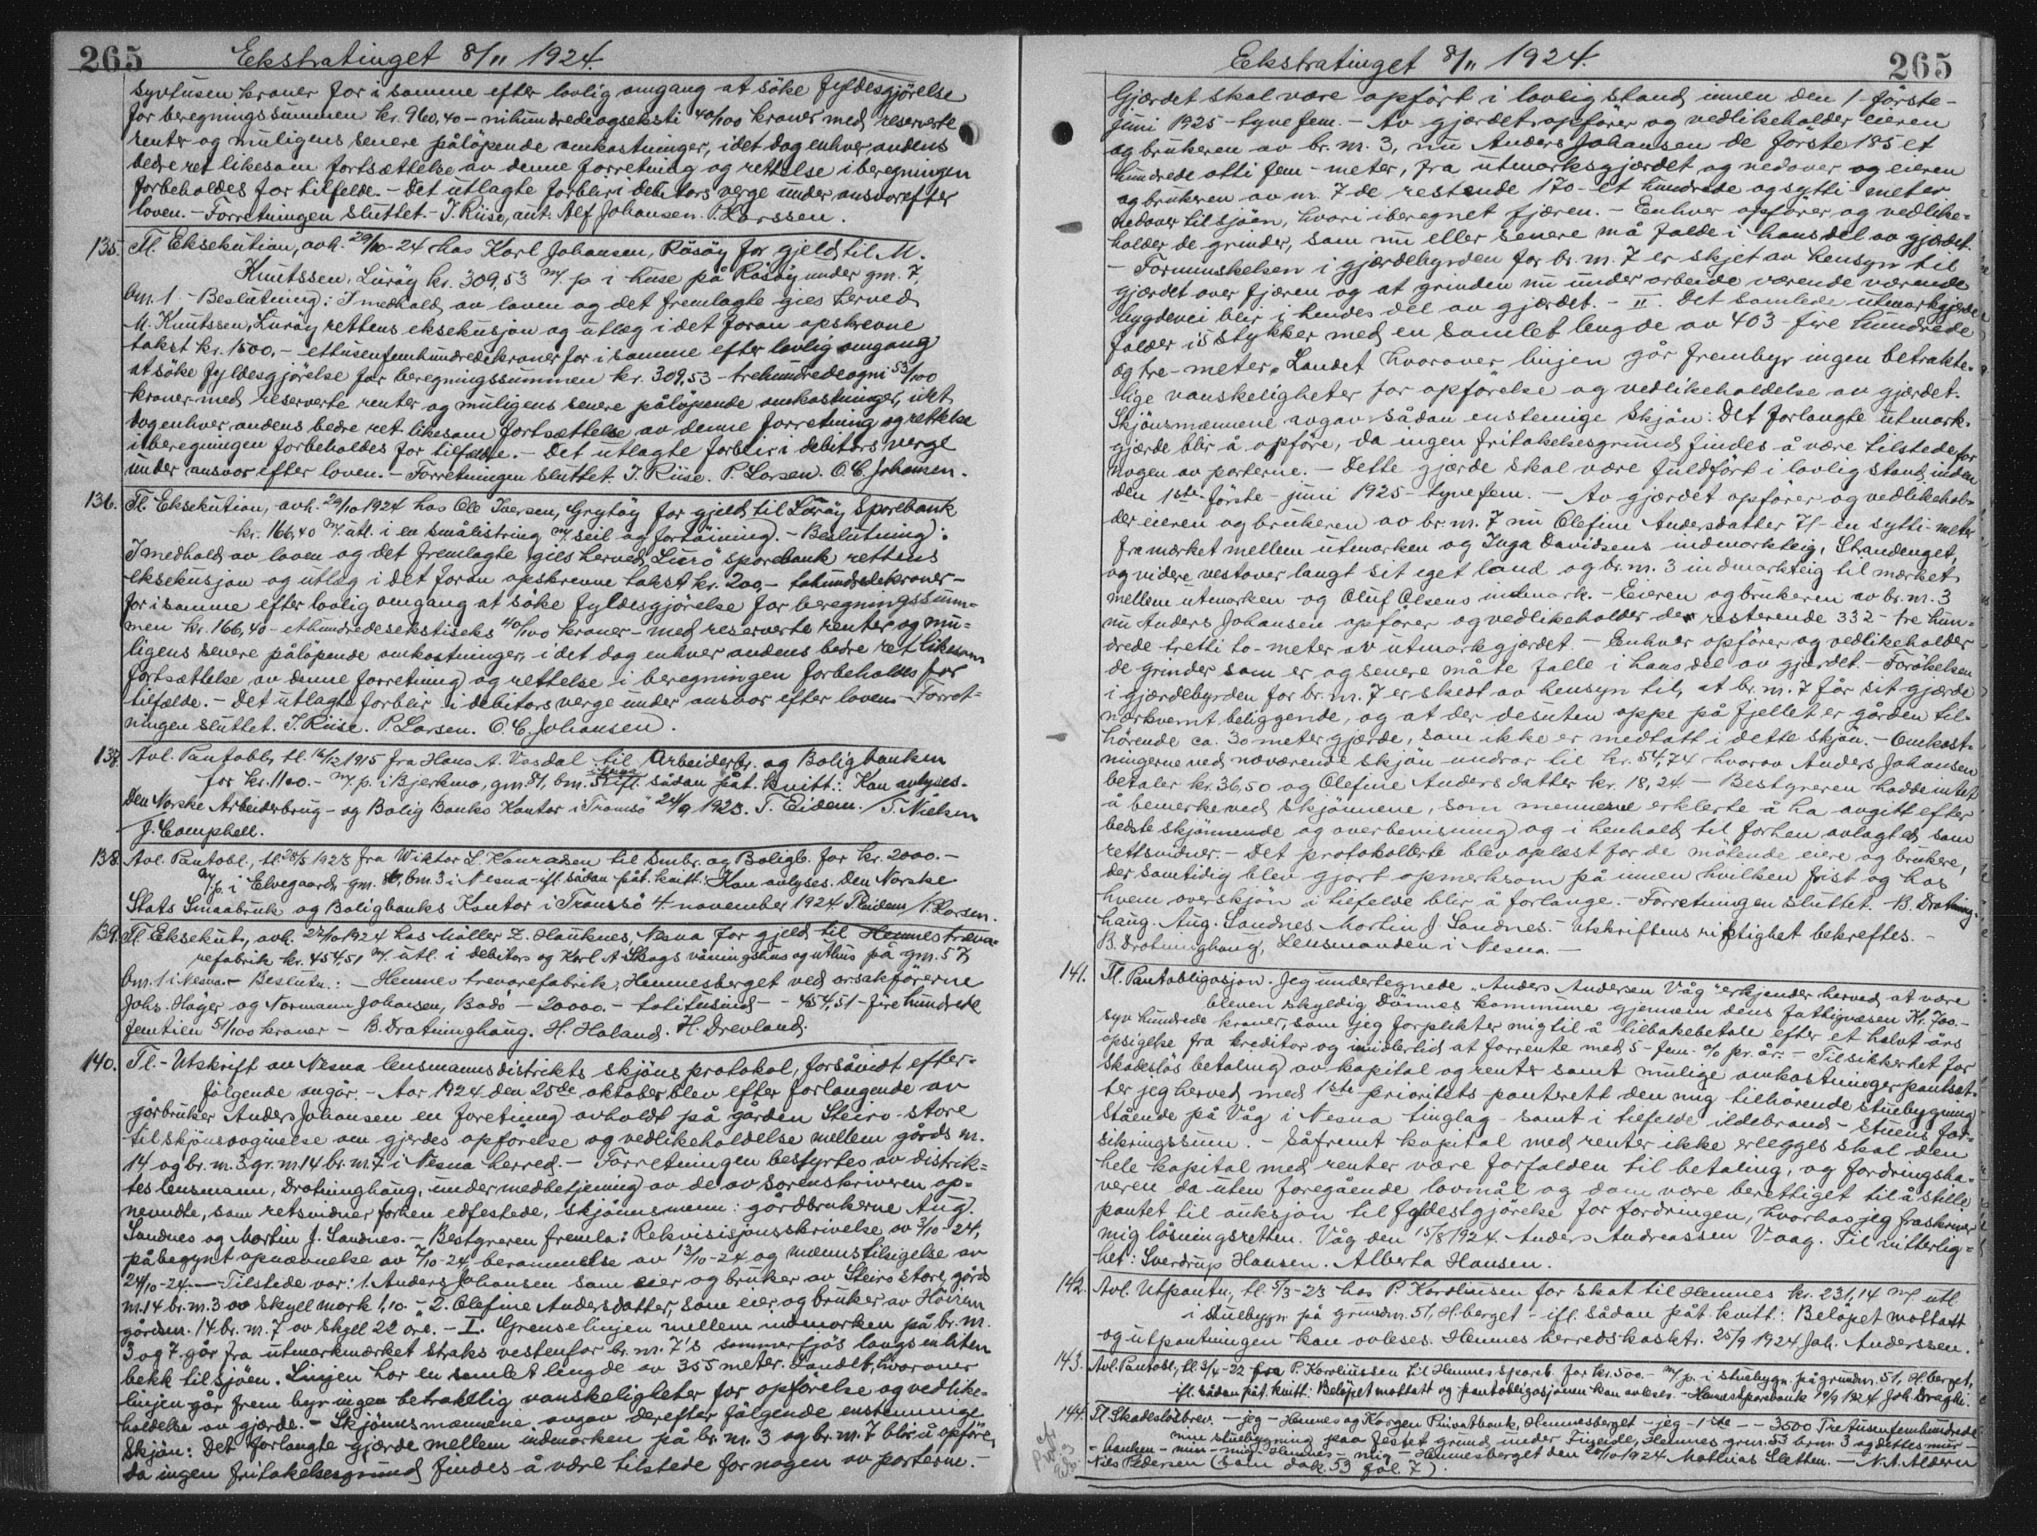 265 Ekstratinget 8/11 1924.
syvtusen kroner for i samme efter lovlig omgang at söke fyldesgjörelse
for beregningssummen kr. 960,40 - nihundredeogseksti 40/100 kroner med reserverte
renter og muligens senere påløpende omkostninger, idet dog enhver andens
bedre ret likesom fortsættelse av denne forretning og rettelse i beregningen
forbeholdes for tilfelde. - Det utlagte forblir i debitors verge under ansvar efter
loven. - Forretningen sluttet. - J. Riise, aut. Alf Johansen. P. Larssen.
135. Tl. Eksekution, avh. 29/10-24 hos Karl Johansen, Råsöy for gjeld til M.
Knutssen, Luröy kr. 309,53 m/ p. i huse på Råsöy under gm. 7,
bm. 1 - Beslutning: I medhold av loven og det fremlagte gies herved
M. Knutssen, Luröy rettens eksekusjon og utlæg i det foran opskrevne
takst kr. 1500,- ettusenfemhundredekroner for i samme efter lovlig omgang
at söke fyldesgjörelse for beregningssummen kr. 309,53 - trehundredeogni 53/100
kroner med reserverte renter og muligens senere pålöpende omkostninger, idet
dog enhver andens bedre ret likesom fortsættelse av denne forretning og rettelse
i beregningen forbeholdes for tilfælde. - Det utlagte forblir i debitors verge
under ansvar efter loven. - Forretningen sluttet. J. Riise. P. Larsen. O. C. Johansen.
136. Tl. Eksekution, avh. 29/10 1924 hos Ole Iversen, Grytöy for gjeld til Luröy Sparebank
kr. 166,40 m/ utl. i en småtistring m/ seil og fortöining. - Beslutning:
I medhold av loven og det fremlagte gies herved Lurö sparebank rettens
eksekusjon og utlæg i det foran opskrevne takst kr. 200,- tohundredekroner -
for i samme efter lovlig omgang at söke fyldesgjörelse for beregningssum-
men kr. 166,40 - ethundredesekstiseks 40/100 kroner - med reserverte renter og mu-
ligens senere pålöpende omkostninger, i det dog enhver andens bedre ret likesom
fortsættelse av denne forretning og rettelse i beregningen forbeholdes for
tilfælde. - Det utlagte forblir i debitors verge under ansvar efter loven. - Forret-
ningen sluttet. J. Riise. P. Larsen. O. C. Johansen.
137. Avl. Pantobl., tl. 16/12 1915 fra Hans A. Vasdal til Arbeiderbr. og Boligbanken
for kr. 1100.- m/ p. i Bjerkmo, gm. 81, bm. 5 ifl. sådan påt. kvitt.: Kan avlyses.
Den Norske Arbeiderbrug - og Bolig Banks Kontor i Tromsö 24/9 1923. T. Eidem. / T. Nielsen
J. Camphell.
138. Avl. Pantobl., tl. 28/5 1923 fra Wiktor L. Konradsen til Smbr. og Boligb. for kr. 2000.-
m/ p. i Elvegaard gm. bm. 3 i Nesna - ifl. sådan påt. kvitt.: Kan avlyses. Den Norske
Stats Smaabruk og Boligbanks Kontor i Tromsö 4. november 1924 T. Eidem / P. Larsen.
139. Tl. Eksekut., avh. 27/10 1924 hos Möller Z. Hauknes, Nesna for gjeld til Hemnes treva-
refabrik kr. 454,51 m/ utl. i debitors og Karl A. Skogs våningshus og uthus på gm. 57,
bm. 1 i Nesna. - Beslutn.: - Hemnes trevarefabrik, Hemnesberget ved orsakförerne
Johs. Höyer og Normann Johansen, Bodö - 20000.- totitusind - - 454,51 - fire hundrede
femtien 51/100 kroner - B. Dratninghaug. H. Haland. H. Drevland.
140. Tl. - Utskrift av Nesna lensmannsdistrikts skjönsprotokol, forsåvidt efter-
fölgende angår. - Aar 1924 den 25de oktober blev efter forlangende av
gårbruker Anders Johansen en foretning avholdt på gården Steiro-store
til skjönsavgivelse om gjerdes opförelse og vedlikeholdelse mellem gårds nr.
14 og br. nr. 3 gr. nr. 14 br. nr. 7 i Nesna herred. - Forretningen bestyrtes av distrik-
tes lensmann, Dratninghaug, under medbetjening av de av sorenskriveren op-
nevndte, som retsvidner forhen edfestede, skjönnsmenn: gårdbrukerne Aug.
Sandnes og Martin J. Sandnes. - Bestyreren fremla: Rekvisisjonsskrivelse av 3/10-24,
påbegynt opnævnelse av 7/10-24 berammelse av 13/10-24 og mænnstilsigelse av
24/10-24. - Tilstede var: 1. Anders Johansen som eier og bruker av Steiro store, gårds
nr. 14 br. nr. 3 av skyll mark 1,10. - 2. Olefine Andersdatter, som eier og bruker av Höiren
gårdsnr. 14 br. nr. 7 av skyll 22 øre. - I. Grenselinjen mellem innmarken på br. nr.
3 og 7 går fra utmarkmærket straks vestenfor br. nr. 7's sommerfjøs langs en liten
bekk til sjöen. Linjen har en samlet lengde av 355 meter. Landet, hvorover
linjen går frem byr ingen betraktelig vanskeligheter for opförelse og vedlike-
holdelse av gjerde. - Skjönnsmænnene avgav derefter fölgende enstemmige
Skjön: Det forlangte gjerde mellem indmarken på br. nr. 3 og br. nr. 7 blir å opföre,
da ingen fritakelsesgrund findes å være tilstede for nogen av parterne. -
Ekstratinget 8/11 1924. 265
Gjærdet skal være opfört i lovlig stand innen den 1 - förste -
juni 1925 - tyvefem. - Av gjærdet opförer og vedlikeholder eieren
og brukeren av br. nr. 3, nu Anders Johansen de förste 185 et
hundrede otti fem - meter, fra utmarksgjærdet og nedover og eieren
og brukeren av nr. 7 de restende 170 - et hundrede og sytti meter
nedover til sjöen, hvori iberegnet fjæren. - Enhver opfører og vedlike-
holder de grinder, som nu eller senere må falde i hans del av gjærdet.
- Forminskelsen i gjærdebyrden for br. nr. 7 er skjet av hensyn til
gjærdet over fjæren og at grinden nu under arbeide værende værende
bygdevei blir i hendes del av gjærdet. - II. Det samlede utmarkgjærde
falder i 5 stykker med en samlet lengde av 403 - fire hundrede
og tre - meter. Landet hvorover linjen går frembyr ingen betrakte-
lige vanskeligheter for opförelse og vedlikeholdelse av gjerdet.
Skjönsmænnene avgav sådan enstemige skjön: Det forlangte utmark-
gjærde blir å opföre, da ingen fritakelsesgrund findes å være tilstede for
nogen av parterne. - Dette gjærde skal være fuldfört i lovlig stand inden
den 1ste - förste - juni 1925 - tyvefem. - Av gjærdet opförer og vedlikehol-
der eieren og brukeren av br. nr. 7 nu Olefine Andersdatter 71 - en sytti - meter
fra mærket mellem utmarken og Inga Davidsens indmarkteig, Strandenget
og videre vestover langt sit eget land og br. nr. 3 indmarkteig til mærket
mellem utmarken og Oluf Olsens indmark. - Eieren og brukeren av br. nr. 3
nu Anders Johansen opförer og vedlikeholder de resterende 332 - tre hun-
drede tretti to - meter av utmarkgjærdet. - Enhver opförer og vedlikeholder
de grinder som er og senere måte falle i hans del av gjærdet. - Forökelsen
i gjærdebyrden for br. nr. 7 er skedt av hensyn til, at br. nr. 7 får sit gjærde
nærkvemt beliggende, og at der desuten oppe på fjellet er gården til-
hörende ca. 30 meter gjærde, som ikke er medtatt i dette skjön. - Omkost-
ningerne ved nærværende skjön andrar til kr. 54,74 hvorav Anders Johansen
betaler kr. 36,50 og Olefine Andersdatter kr. 18,24 - Bestyreren hadde intet
å bemerke ved skjönnene, som mennene erklerte å ha avgitt efter
bedste skjönnende og overbevisning og i henhold til forhen avlagt ed som
rettsvidner. - Det protokollerte blev oplæst for de mötende eiere og brukere,
der samtidig blev gjort opmerksom på innen hvilken frist og hos
hvem overskjön i tilfelde blir å forlange. - Forretningen sluttet. B. Dratning-
haug. Aug. Sandnes Martin J. Sandnes. - Utskriftens riktighet bekreftes. -
B. Dratninghaug, Lensmanden i Nesna. -
141. Tl. Pantobligasjon. Jeg undertegnede "Anders Andersen Våg" erkjender herved at være
bleven skyldig Dönnes kommune gjennem dens fattigvæsen Kr. 700.-
syv hundrede kroner, som jeg forplikter mig til å tilbakebetale efter et halvt års
opsigelse fra kreditor og imidlertid at forrente med 5 - fem % pr. år. - Til sikkerhet for
skadeslös betaling av kapital og renter samt mulige omkostninger pantset-
ter jeg herved med 1ste prioritets panterett den mig tilhörende stuebygning
stående på Våg i Nesna tinglag - samt i tilfelde ildebrand - stuens for-
sikringssum. - Såfremt kapital med renter ikke erlegges skal den
hele kapital med renter være forfalden til betaling, og fordringsha-
veren da uten foregående lovmål og dom være berettiget til å stille
pantet til auksjon til fyldestgjörelse for fordringen, hvorhos jeg fraskriver
mig lösningsretten. Våg den 15/8 1924. Anders Andreassen Vaag. Til vitterlig-
het: Sverdrup Hansen. Alberta Hansen.
142. Avl. Utpantn., tl. 5/3-23 hos P. Karolinsen for skat til Hemnes kr. 231,14 m/ utl.
i stuebygn. på grundnr. 51, H.berget - ifl. sådan påt. kvitt: Belöpet mottatt
og utpantningen kan avleses. Hemnes herredskasse. 25/9 1924 Joh. Anderssen.
143. Avl. Pantobl., tl. 3/4-22 fra P. Karoliussen til Hemnes spareb. for kr. 500.- m/ p. i stuebygn. på grundnr. 51, H.berget,
ifl. sådan påt. kvitt: Belöpet mottatt og pantobligasjonen kan avleses. - Hemnes sparebank 19/9 1924 Joh. Draghi.
144. Tl. Skadeslösbrev. - jeg - Hemnes og Korgen Privatbank, Hemnesberget - jeg - 1ste - - 3500 Tretusenfemhundrede -
min stuebygning paa festet grund under Zigeide, Hemnes grnr. 53 brnr. 3 og dettes mur -
- banken - min - mig Hemnes - mig - Hemnesberget den 20/10 1924 Mathias Sletten. - N. A. Aldern
Nils Pedersen (som dok. 53 fol. 7).